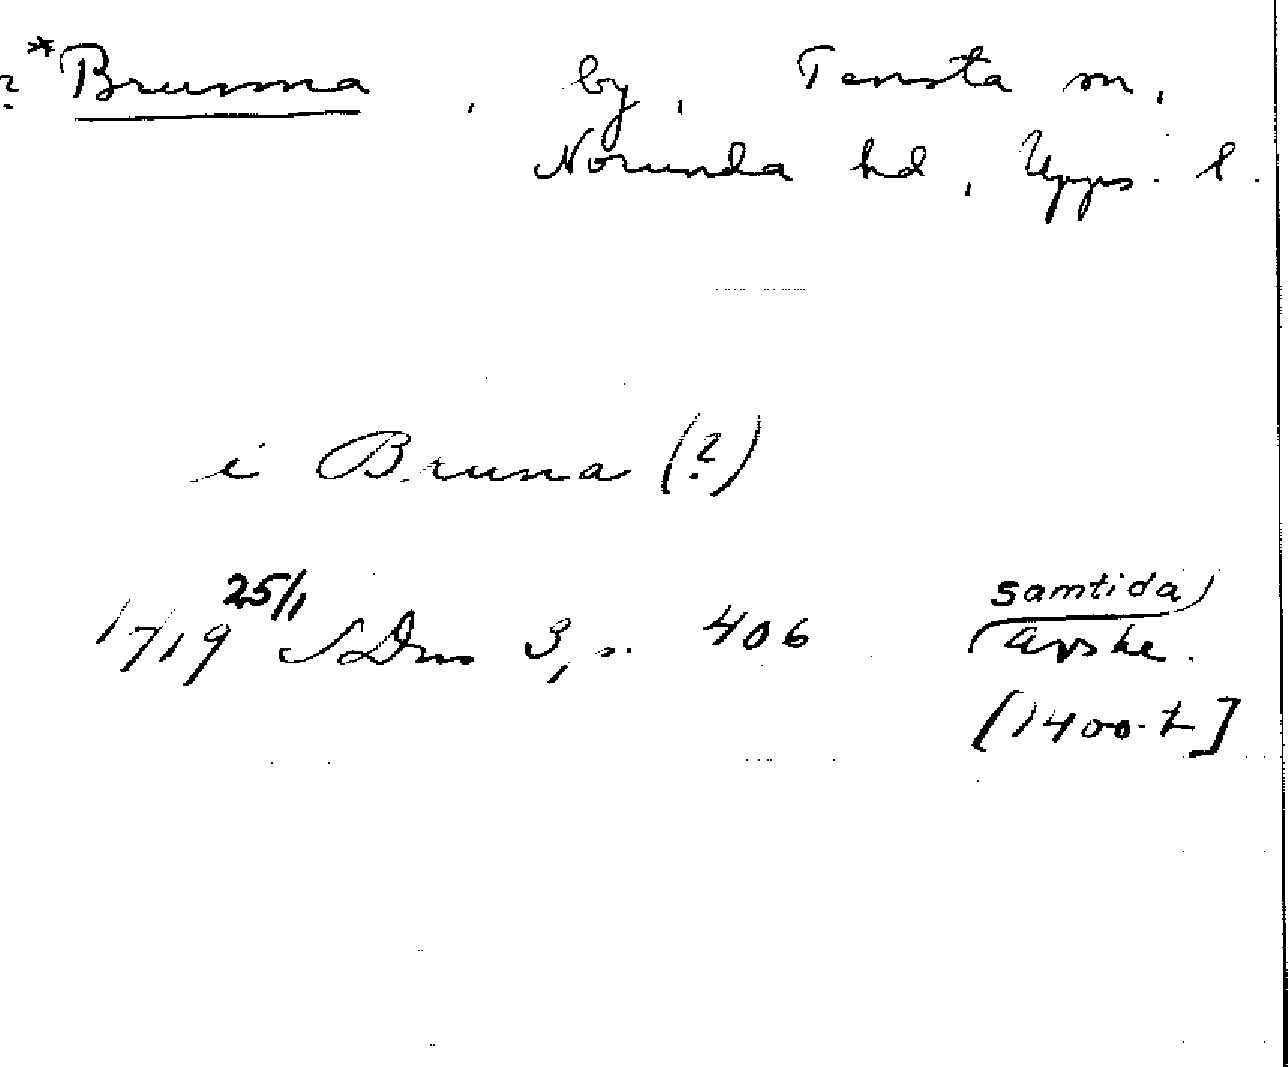 ? *Brunna , by , Tensta sn ,
Norunda hd , Upps. l.
i Bruna (?)
1419 25/1 SDns 3, s. 406
samtida
avskr.
[1400-t]